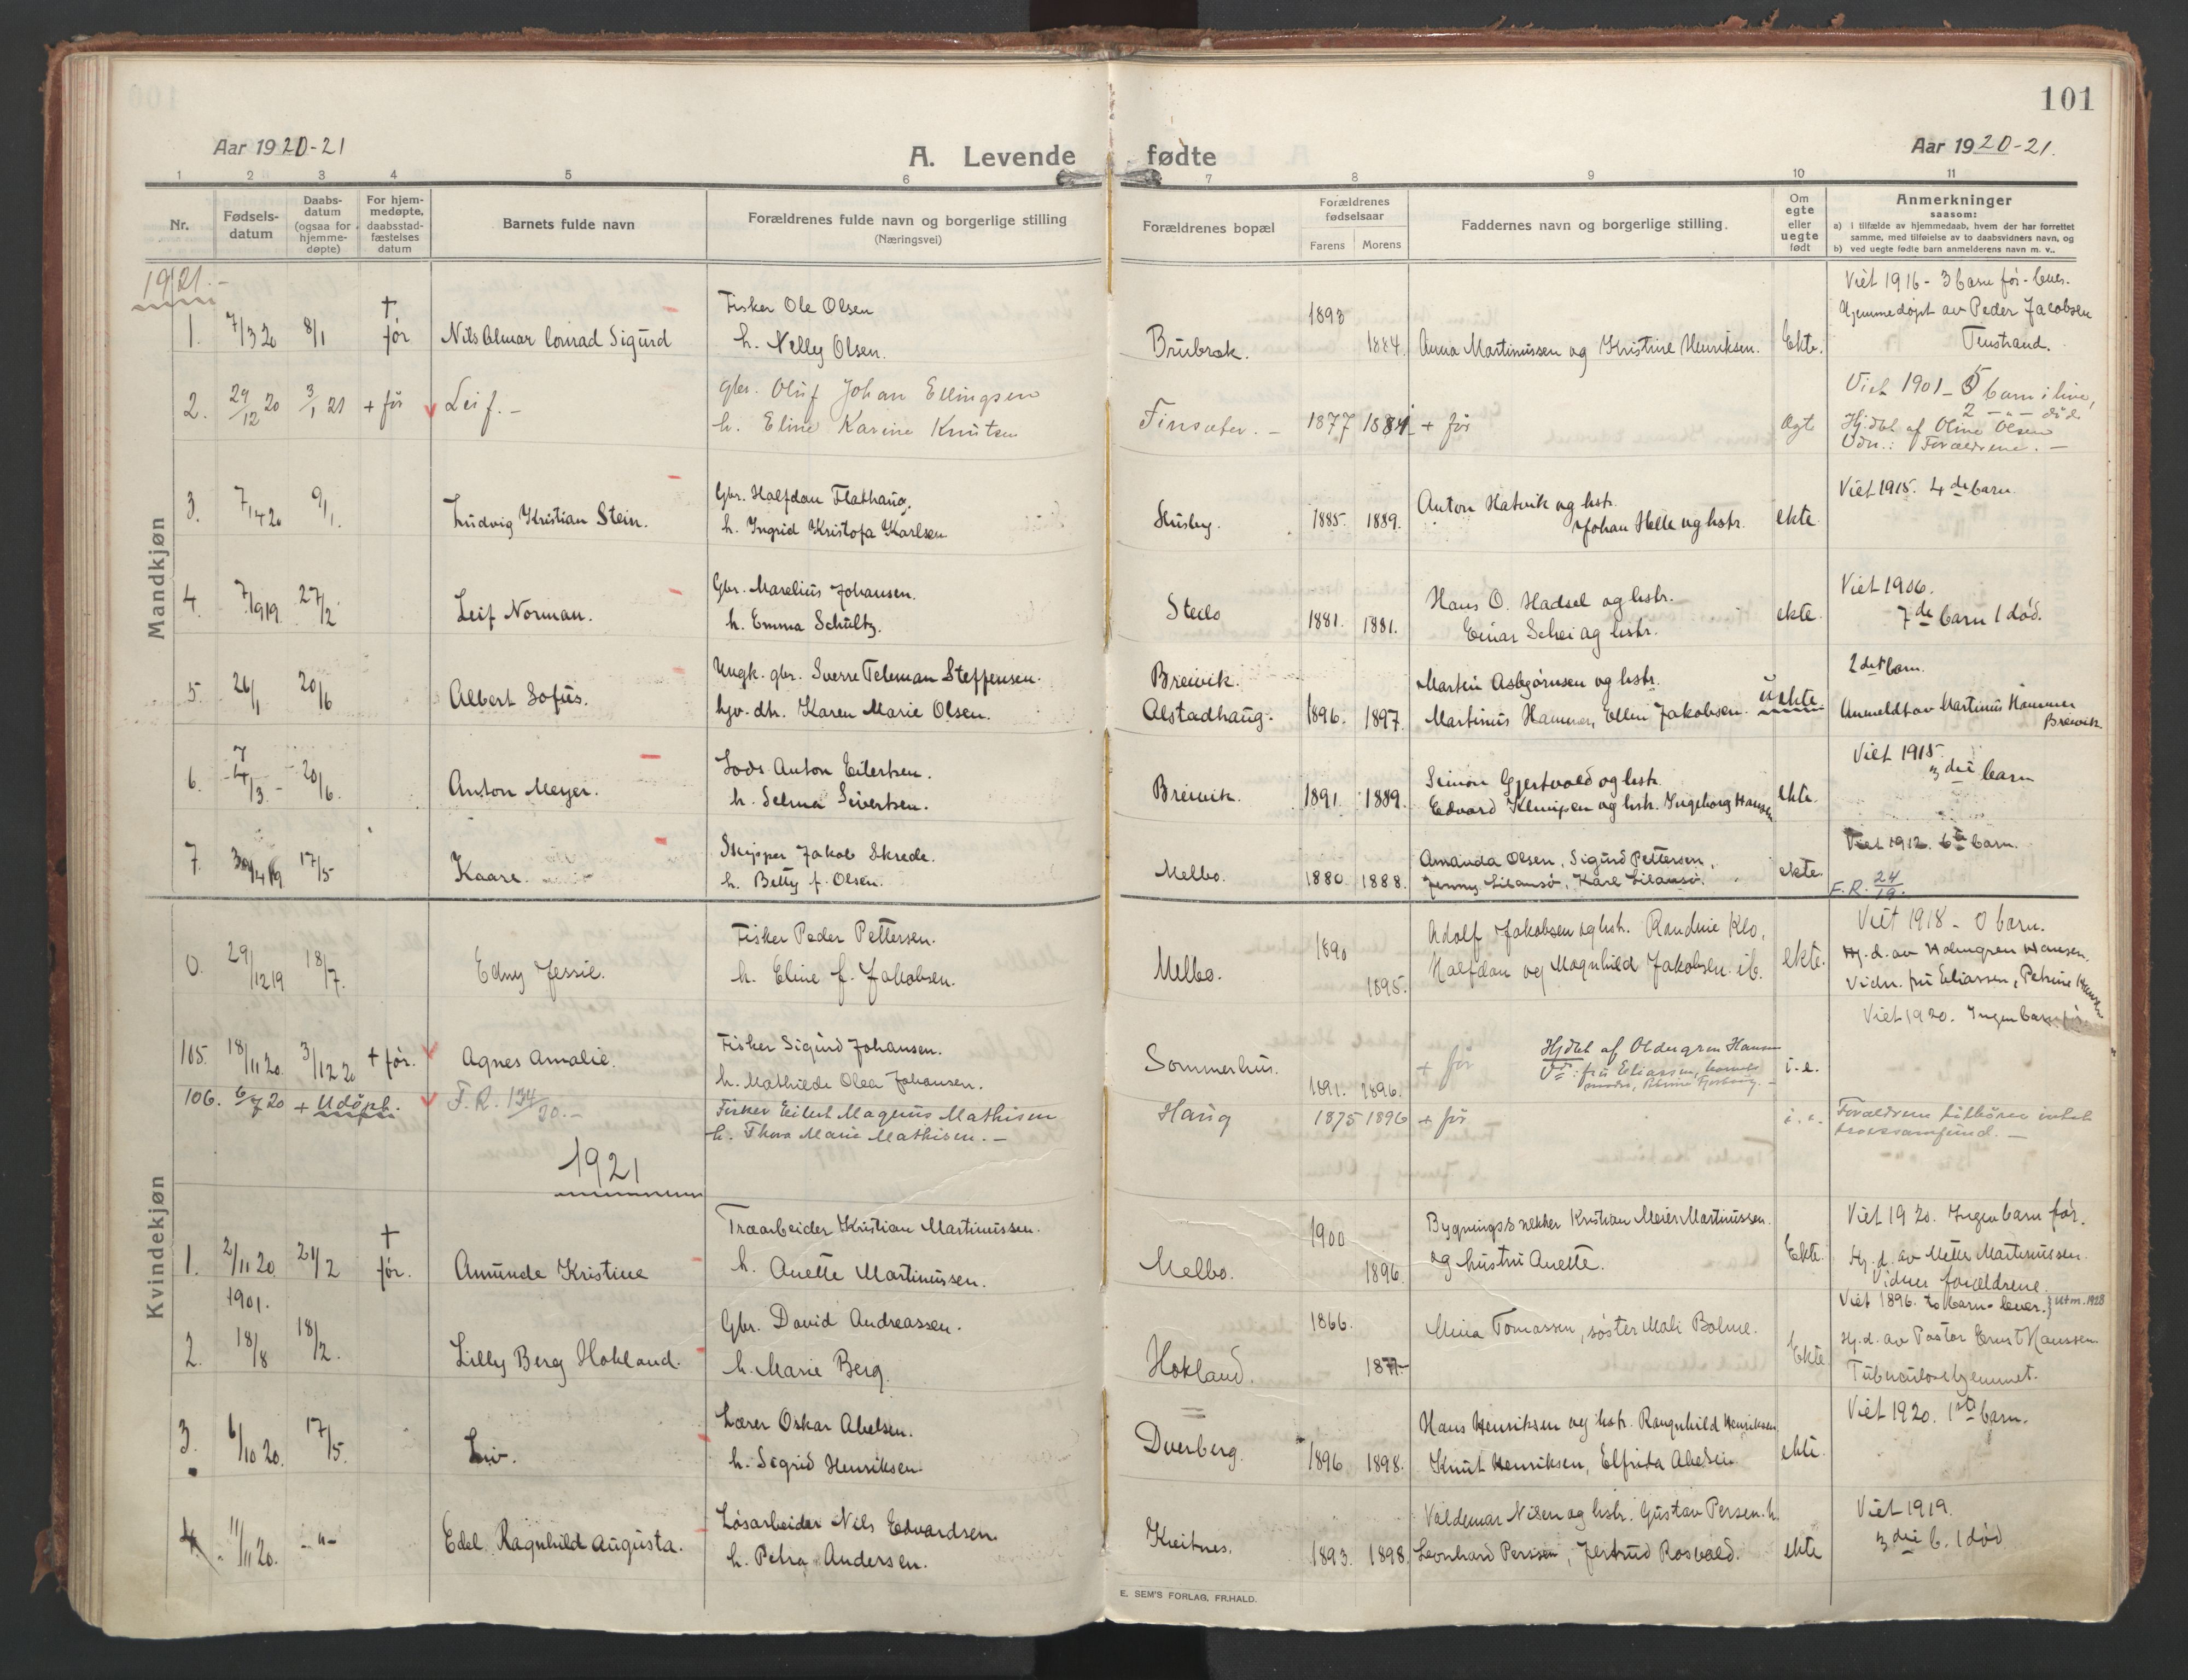 101
Aar 1920-21
A. Levende fødte
Aar 1920-21.
1 2 3 4 5 6 7 8 9 10 11
Nr.
Fødsels-
datum
Daabs-
datum
(ogsaa for
hjemme-
døpte)
For hjem-
medøpte,
daabsstad-
fæstelses
datum
Barnets fulde navn
Forældrenes fulde navn og borgerlige stilling
(Næringsvei)
Forældrenes bopæl
Forældrenes
fødselsaar
Farens Morens
Faddernes navn og borgerlige stilling.
Om
egte
eller
uegte
født
Anmerkninger
saasom:
a) i tilfælde av hjemmedaab, hvem der har forrettet
samme, med tilføielse av to daabsvidners navn, og
b) ved uegte fødte barn anmelderens navn m. v..
Mandkjøn
1921.-
1. 7/3 20 8/1 † før Nils Almar Conrad Sigurd
Fisker Ole Olsen
h. Nelly Olsen.
1893 1884.
Anna Martinussen og Kristine Henriksen. Ekte.
Viet 1916 - 3 barn før - lever.
Hjemmedøpt av Peder Jacobsen
2. 29/12 20 3/1 21 + før Leif. -
gbr. Oluf Johan Ellingsen
h. Eline Karine Knutsen
Finsæter. - 1877 1884 + før Ægt
Viet 1901 - 5 barn i live,
2 -"- døde
Hj.dbt af Oline Olsen
Vdn.: Forældrene. -
3. 7/4 20 9/1. Ludvig Kristian Stein.
Gbr. Halfdan Flathaug.
h. Ingrid Kristofa Karlsen
Husby. 1885. 1889.
Anton Hatvik og hstr.
Johan Helle og hstr. ekte.
Viet 1915. 4de barn
4. 7/1919. 27/2 Leif Norman.
Gbr. Marelius Johansen.
h. Emma Schultz.
Steilo 1881. 1881.
Hans O. Hadsel og hstr.
Einar Schei og hstr. ekte.
Viet 1906.
7de barn 1 død.
5. 26/1 20/6 Albert Sofus.
Ungk. gbr. Sverre Teleman Steffensen.
hjv. dtr. Karen Marie Olsen.
Breivik.
Alstadhaug. 1896. 1897.
Martin Asbjørnsen og hstr.
Martinus Hammer, Ellen Jakobsen. uekte
2det barn.
Anmeldt av Martinus Hammer
Breivik
6. 7/3. - 20/6. Anton Meyer.
Lods Anton Eilertsen.
h. Selma Sivertsen.
Breivik. 1891. 1889.
Simon Gjertvold og hstr.
Edvard Klungsen og hstr. Ingeborg Hansen ekte.
Viet 1915.
3die barn
7. 30/4 19 17/5 Kaare.
Skipper Jakob Skrede.
h. Betty f. Olsen.
Melbo. 1880. 1888.
Amanda Olsen, Sigurd Pettersen,
Jenny Lilansø, Karl Lilansø. ekte.
Viet 1912. 6te barn.
F.R. 24/19.
Kvindekjøn
0. 29/12 19 18/7. Edny Jessie.
Fisker Peder Pettersen.
h. Eline f. Jakobsen.
Melbo. 1890 1895.
Adolf Jakobsen og hstr. Randine Klo,
Halfdan og Magnhild Jakobsen. ib. ekte.
Viet 1918 - 0 barn.
Hj.d. av Holmgren Hansen.
Vidn. fru Eliassen, Petrine Hansen
105. 18/11 20. 3/12 20 + før. Agnes Amalie.
Fisker Sigurd Johansen.
h. Mathilde Olea Johansen.
Sommerhus. 1891. 1896.
+ før Hjdbt af Oldugren Hansen
Vd: fru Eliassen, i.e.
Viet 1920. Ingen barn før
106. 6/7 20 + Udøpt. F.R. 134/20. -
Fisker Eilert Magnus Mathisen
h. Thora Marie Mathisen. -
Haug 1875 1896 + før i.e.
Forældrene tilhører intet
trossamfund. -
1921
1. 2/11 20. 21/2 † før. Amunde Kristine
Træarbeider Kristian Martinussen.
h. Anette Martinussen.
Melbo. 1900 1896.
Bygningssnekker Kristian Meier Martinussen.
og hustru Anette. Ekte.
Viet 1920. Ingen barn før.
Hj.d. av Mette Martinussen.
Vidner forældrene.
2. 1901. 18/8 18/2. Lilly Berg Hokland.
Gbr. David Andreassen.
h. Marie Berg.
Hokland. 1866. 1877
Mina Tomassen, søster Mali Bolme. Ekte
Viet 1896. to barn - lever. utm. 1928
Hj.d. av Pastor Ernst Hanssen.
Tuberkulosehjemmet.
3. 6/10 20. 17/5. Liv.
Lærer Oskar Abelsen.
h. Sigrid Henriksen.
Dverberg. 1896 1898.
Hans Henriksen og hstr. Rangnhild Henriksen
Knut Henriksen, Elfrida Abelsen. ekte.
Viet 1920. 1ste barn.
4. 11/11 20. -"- Edel Ragnhild Augusta.
Løsarbeider Nils Edvardsen.
h. Petra Andersen.
Kleitnes. 1893. 1898.
Valdemar Nilsen og hstr. Gustav Persen. h.
Leonhard Persen, Jertrud Rosvold. ekte
Viet 1919.
3die b. 1 død
E. SEM'S FORLAG, FR.HALD.